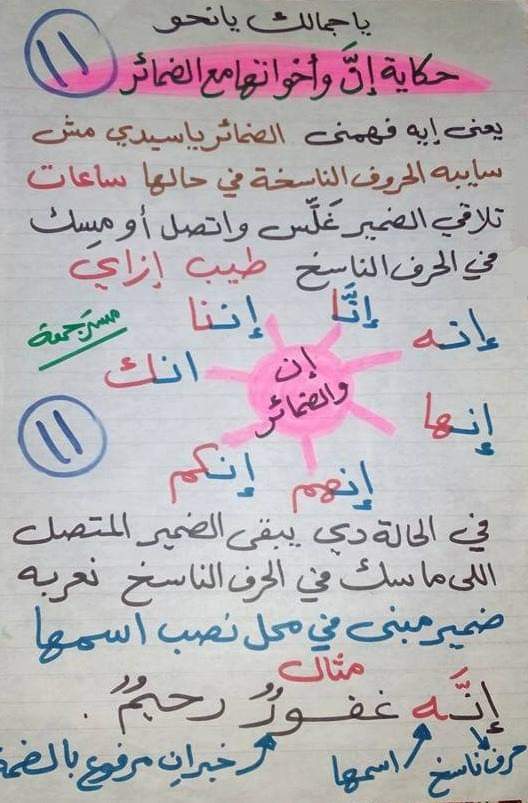 ياجمالك يانحو
١١
حكاية إنَّ وأخواتها مع الضمائر
يعنى إيه فهمنى الضمائر ياسيدي مش
سايبه الحروف الناسخة في حالها ساعات
تلاقي الضمير غَلِّس واتصل أو مِسِك
في الحرف الناسخ طيب إزاي
إننا إنَّا إنه
مستر جمعة
انك إن والضمائر إنها
١١
إنكم إنهم
في الحالة دي يبقى الضمير المتصل
اللى ماسك في الحرف الناسخ نعربه
ضمير مبنى في محل نصب اسمها
مثال
إنَّه غفورٌ رحيمٌ .
حرف ناسخ اسمها خبر إن مرفوع بالضمة